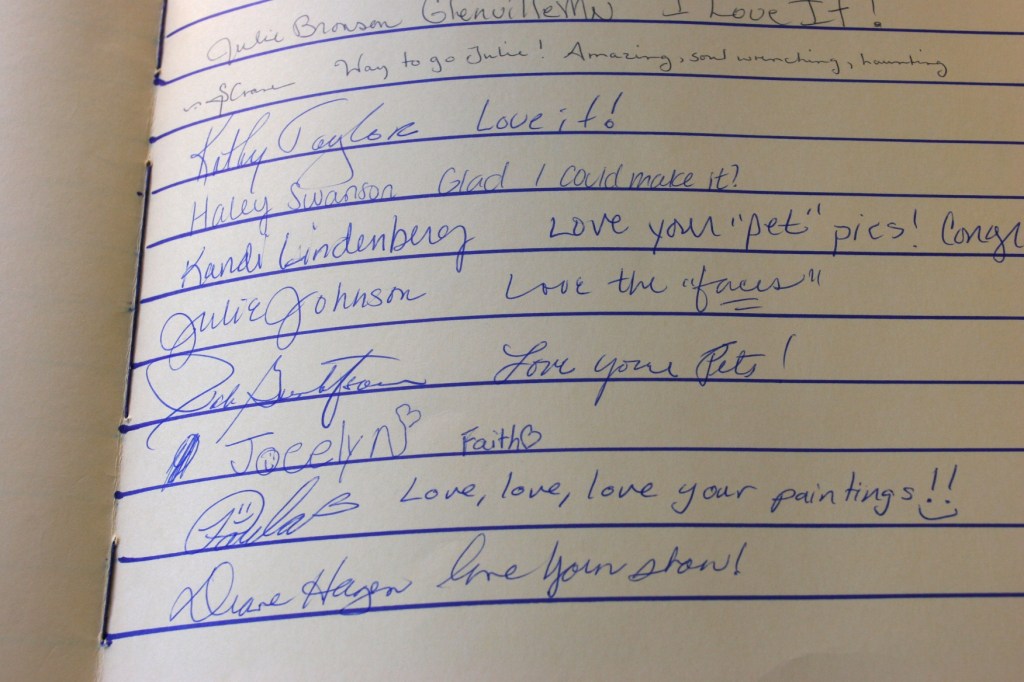 Julie Bronson Glenville MN I Love It!
Way to go Julie! Amazing, soul wrenching, haunting
Crane
Kathy Taylor Love it!
Haley Swanson Glad I could make it?
Kandi Lindenberg Love your "pet" pics! Congr
Julie Johnson Love the "faces"
Love your Pets!
Jocelyn Faith
Love, love, love your paintings!!
Diane Hagen love your show!